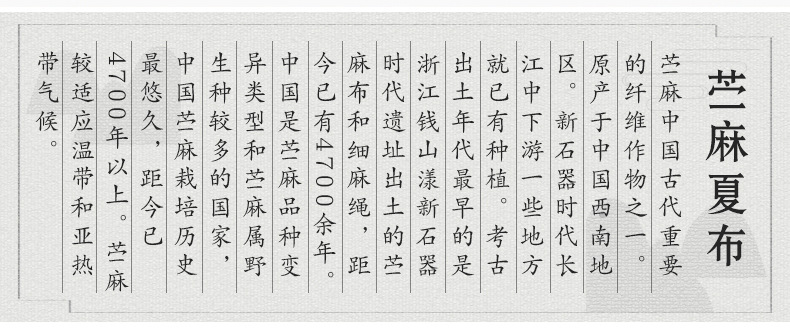 苎麻夏布
苎麻中国古代重要
的纤维作物之一。
原产于中国西南地
区。新石器时代长
江中下游一些地方
就已有种植。考古
出土年代最早的是
浙江钱山漾新石器
时代遗址出土的苎
麻布和细麻绳，距
今已有4700余年。
中国是苎麻品种变
异类型和苎麻属野
生种较多的国家，
中国苎麻栽培历史
最悠久，距今已
4700年以上。苎麻
较适应温带和亚热
带气候。